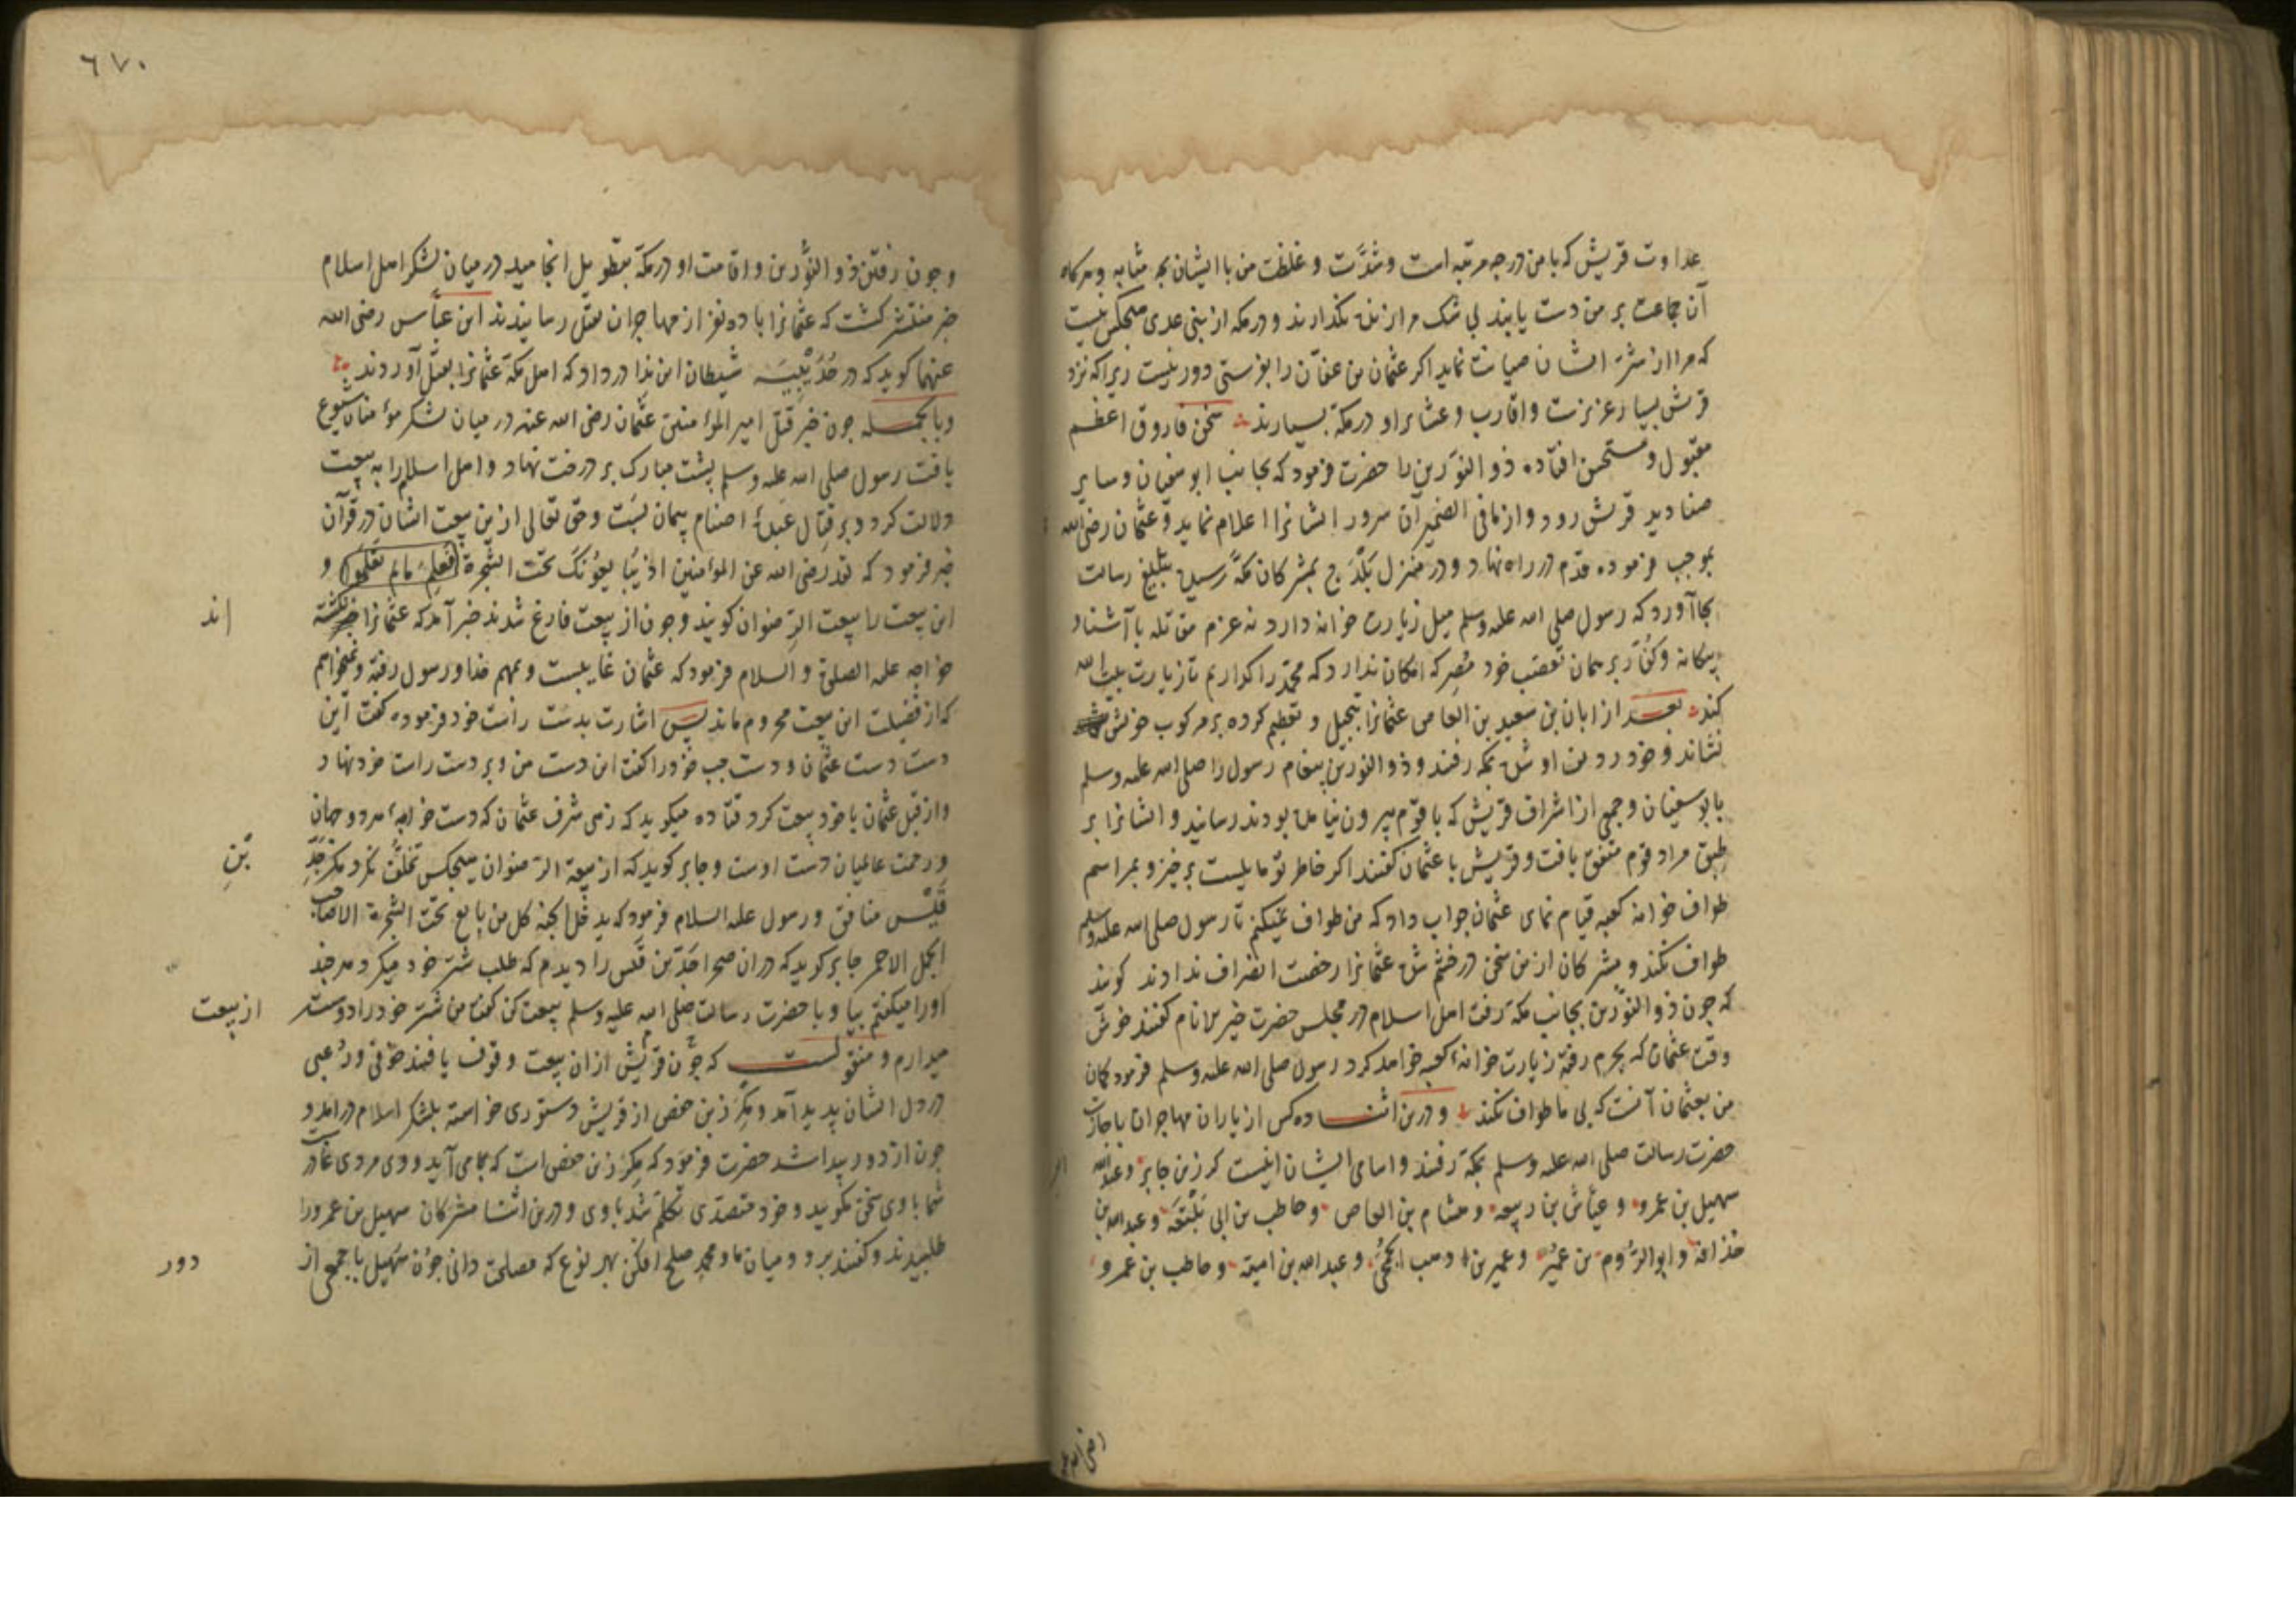 عداوت قریش که با من درجه مرتبه است و شدّت و غلظت من با ایشان بچه مثابه و هرکاه
آن جماعت بر من دست یابند بی شک مرا زنده نکذارند و در مکه از بنی عدی هیچکس نیست
که مرا از شر ایشان صیانت نماید اکر عثمان بن عفّان را بفرستی دور نیست زیرا که نزد
قریش بسیار عزیزست و اقارب و عشایر او در مکّه بسیارند سخن فاروق اعظم
مقبول و مستحسن افتاده ذو النوّرین را حضرت فرمود که بجانب ابو سفیان و سایر
صنادید قریش رود و از ما فی الضمیر آن سرور ایشانرا اعلام نماید و عثمان رضی الله
بموجب فرموده قدم در راه نهاد و در منزل بَلْدَح بمشرکان مکّه رسیده بتبلیغ رسالت
بجا آورد که رسول صلی الله علیه وسلم میل زیارت خانه دارد نه عزم مقاتله با آشنا و
بیکانه و کفّار بر همان تعصّب خود مُصِر که امکان ندارد که محمّد را کذاریم تا زیارت بیت الله
کند بعـد از ابان بن سعید بن العاص عثمانرا تبجیل و تعظیم کرده بر مرکوب خویش
نشاند و خود ردیف او شده بمکه رفتند و ذو النورین پیغام رسول را صلی الله علیه وسلم
بابو سفیان و جمعی از اشراف قریش که با قوم بیرون نیامده بودند رسانید و ایشانرا بر
طبق مراد قوم متفق یافت و قریش با عثمان کفتند اکر خاطر تو مایلست برخیز و بمراسم
طواف خانه کعبه قیام نمای عثمان جواب داد که من طواف نمیکنم تا رسول صلی الله علیه وسلم
طواف نکند و مشرکان ازین سخن در خشم شده عثمانرا رخصت انصراف ندادند کویند
که چون ذو النوّرین بجانب مکّه رفت اهل اسلام در مجلس حضرت خیر الانام کفتند خوش
وقت عثمان که بحرم رفته زیارت خانه کعبه خواهد کرد رسول صلی الله علیه وسلم فرمود کمان
من بعثمان آنست که بی ما طواف نکند و درین اثنـا ده کس از یاران مهاجران باجازت
حضرت رسالت صلی الله علیه وسلم بمکّه رفتند و اسامی ایشان اینست کرز بن جابر و عبد الله
سهیل بن عمرو و عیّاش بن ربیعه و هشام بن العاص و حاطب بن ابی بَلْتَعَه و عبد الله بن
حذافة و ابو الرّوم بن عمیر و عمیر بن وهب الجُمَحی و عبد الله بن امیّه و حاطب بن عمرو
٦٧٠
وچون رفتن ذو النّورین و اقامت او در مکّه بتطویل انجامید در میان لشکر اهل اسلام
خبر منتشر کشت که عثمانرا با ده نفر از مهاجران بقتل رسانیدند ابن عبّاس رضی الله
عنهما کوید که در حُدَیْبِیَه شیطان این ندا در داد که اهل مکّه عثمانرا بقتل آوردند
وبالجملـه چون خبر قتل امیر المؤمنین عثمان رضی الله عنه در میان لشکر مؤمنان شیوع
یافت رسول صلی الله علیه وسلم پشت مبارک بر درخت نهاد و اهل اسلام را به بیعت
دلالت کرد و بر قتال عَبَدهٔ اصنام پیمان بَست و حق تعالی ازین بیعت ایشان در قرآن
خبر فرمود که لقد رضی الله عن المؤمنین اذ یُبایعُونَکَ تحت الشّجرة فَعلِمَ ما لم تَعلَمُوا و
این بیعت را بیعت الرّضوان کویند وچون از بیعت فارغ شدند خبر آمد که عثمانرا نکشته
اند
خواجه علیه الصلوة و السلام فرمود که عثمان غایبست و بمهم خدا و رسول رفته و نمیخواهم
که از فضیلت این بیعت محروم ماند پس اشارت بدست راست خود فرموده کفت این
دست دست عثمان و دست چپ خود را کفت این دست من و بر دست راست خود نهاد
و از قبل عثمان با خود بیعت کرد قتاده میکوید که زهی شرف عثمان که دست خواجهٔ هر دو جهان
و رحمت عالمیان دست اوست و جابر کوید که از بیعة الرّضوان هیچکس تخلّف نکرد مکر جَدِّ
بْنِ
قَیْس منافق و رسول علیه السلام فرمود که یدخل الجنّة کل من بایع تحت الشجرة الا صاحب
الجمل الاحمر جابر کوید که در ان صحرا جَدّ بن قَیس را دیدم که طلب شتر خود میکرد هر چند
اورا میکفتم بیا و با حضرت رسالت صلی الله علیه وسلم بیعت کن کفت من شتر خود را دوستر
از بیعت
میدارم و منقولسـت که چون قریش از ان بیعت وقوف یافتند خوفی و رُعبی
در دل ایشان پدید آمد و مِکرَز بن حفص از قریش دستوری خواسته بلشکر اسلام درآمد و
چون از دور پیدا شد حضرت فرمود که مِکرَز بن حفص است که می آید و وی مردی غادرست
شما با وی سخن مکویید و خود متصدّی تکلّم شد با وی و درین اثنا مشرکان سهیل بن عمرورا
طلبیدند و کفتند برو و میان ما و محمد صلح افکن بهر نوع که مصلحت دانی چون سُهَیل با جمعی از
دور